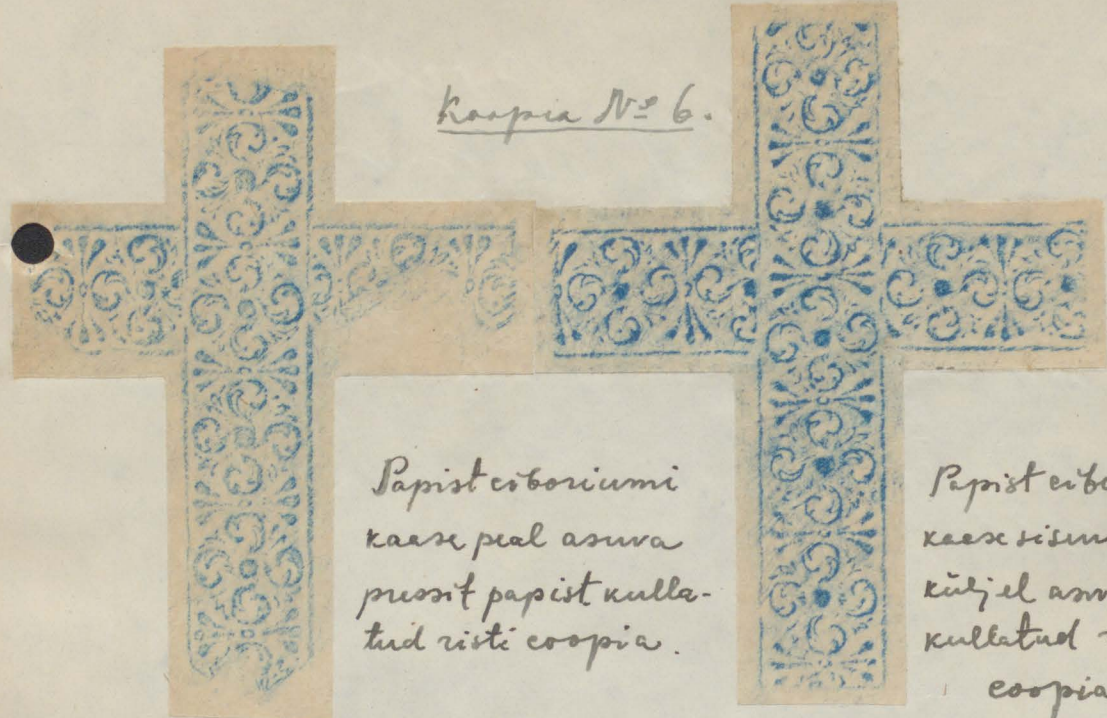 Koopia No 6.
Papist ciboriumi
kaase peal asuva
pressit papist kulla-
tud risti coopia.
Papist cibo
kaase sisem
küljel asuv
kullatud
coopia